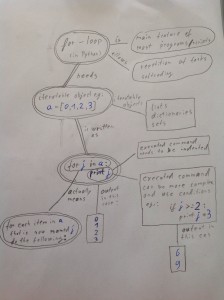 for-loop
(in Python)
is
main feature of
most programs/scripts
allows
repetition of tasks
needs
iterable object eg:
a=[0,1,2,3]
iterable objects
lists
dictionaries
sets
is written
as
for j in a:
print j
executed command
needs to be indented
actually
means
output in
this case:
executed command
can be more complex
and use conditions
eg:
if j>=2:
print j*3
for each item in a
that is now named j
do the following:
0
1
2
3
output in
this case
6
9